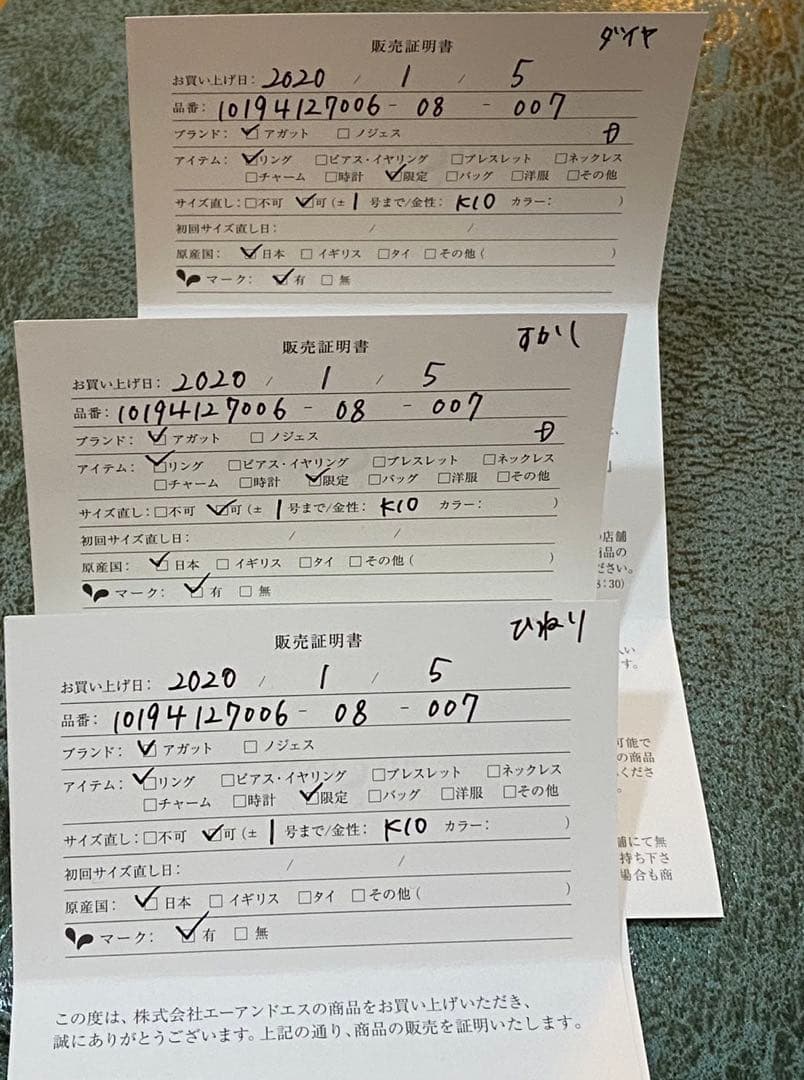 ダイヤ
販売証明書
お買い上げ日: 2020 / 1 / 5
品番: 10194127006 - 08 - 007
ブランド: ☑アガット □ノジェス
アイテム: ☑リング □ピアス・イヤリング □ブレスレット □ネックレス
□チャーム □時計 ☑限定 □バッグ □洋服 □その他
サイズ直し: □不可 ☑可(± 1 号まで/金性: K10 カラー: )
初回サイズ直し日: / /
原産国: ☑日本 □イギリス □タイ □その他( )
マーク: ☑有 □無
すかし
販売証明書
お買い上げ日: 2020 / 1 / 5
品番: 10194127006 - 08 - 007
ブランド: ☑アガット □ノジェス
アイテム: ☑リング □ピアス・イヤリング □ブレスレット □ネックレス
□チャーム □時計 ☑限定 □バッグ □洋服 □その他
サイズ直し: □不可 ☑可(± 1 号まで/金性: K10 カラー: )
初回サイズ直し日: / /
原産国: ☑日本 □イギリス □タイ □その他( )
マーク: ☑有 □無
ひねり
販売証明書
お買い上げ日: 2020 / 1 / 5
品番: 10194127006 - 08 - 007
ブランド: ☑アガット □ノジェス
アイテム: ☑リング □ピアス・イヤリング □ブレスレット □ネックレス
□チャーム □時計 ☑限定 □バッグ □洋服 □その他
サイズ直し: □不可 ☑可(± 1 号まで/金性: K10 カラー: )
初回サイズ直し日: / /
原産国: ☑日本 □イギリス □タイ □その他( )
マーク: ☑有 □無
この度は、株式会社エーアンドエスの商品をお買い上げいただき、
誠にありがとうございます。上記の通り、商品の販売を証明いたします。
の店舗
商品の
ださい。
8:30)
す。
可能で
の商品
くださ
舗にて無
持ち下さ
場合も商